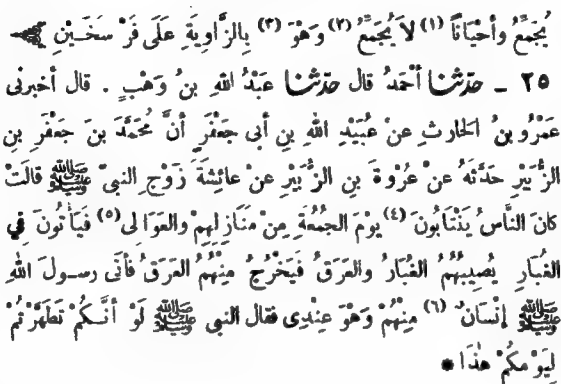 يُجَمِّعُ وأَحْيَاناً (١) لاَ يُجَمِّعُ (٢) وَهْوَ (٣) بِالزَّاوِيَةِ عَلَى فَرْسَخَيْنِ
٢٥ ـ حدّثنا أَحْمَدُ قال حدّثنا عَبْدُ اللهِ بنُ وَهْبٍ . قال أخبرنى
عَمْرُو بنُ الحَارِثِ عنْ عُبَيْدِ اللهِ بنِ أبى جَعْفَرٍ أنَّ مُحَمَّدَ بنَ جَعْفَرِ بنِ
الزُّبَيْرِ حَدَّثَهُ عنْ عُرْوَةَ بنِ الزُّبَيْرِ عنْ عائِشَةَ زَوْجِ النبىِّ ﷺ قالَتْ
كانَ النَّاسُ يَنْتَابُونَ (٤) يوْمَ الجُمُعَةِ مِنْ مَنَازِلِهِمْ والعَوَالِى (٥) فَيَأْتُونَ فِي
الغُبَارِ يُصِيبُهُمُ الغُبَارُ والعَرَقُ فَيَخْرُجُ مِنْهُمُ العَرَقُ فَأَتَى رسولَ اللهِ
ﷺ إنْسَانٌ (٦) مِنْهُمْ وَهْوَ عِنْدِى فقال النبى ﷺ لَوْ أنَّكُمْ تَطَهَّرْتُمْ
لِيَوْمِكُمْ هٰذَا *